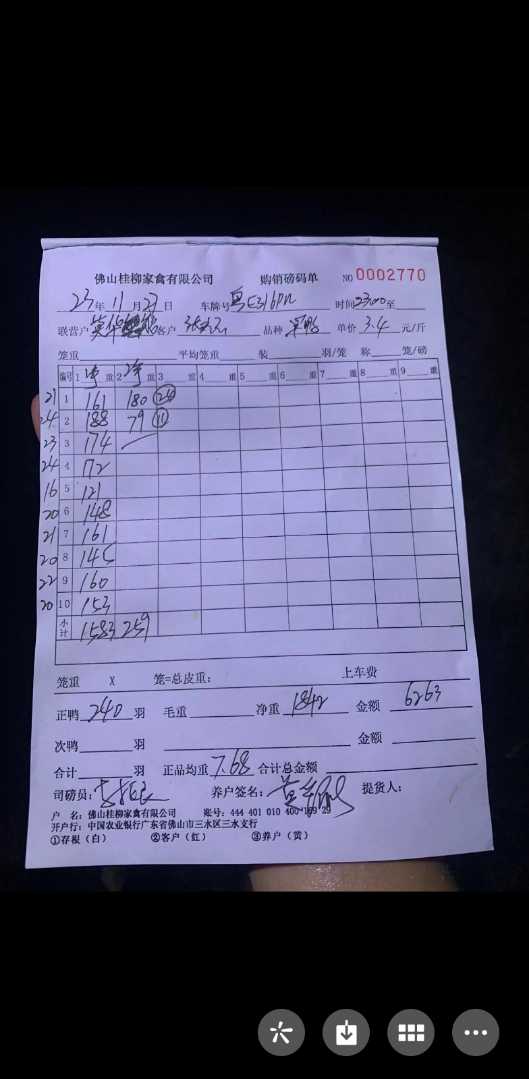 佛山桂柳家禽有限公司 购销磅码单 NO 0002770
23年 11月 27日 车牌号 粤E316DN 时间 23:00 至
联营户 客户 品种 单价 3.4 元/斤
笼重 平均笼重 装 羽/笼 称 笼/磅
编号 1 净重 2 净重 3 重 4 重 5 重 6 重 7 重 8 重 9 重
21 1 161 180 24
24 2 188 79 11
23 3 174
24 4 172
16 5 121
20 6 148
21 7 161
20 8 145
22 9 160
20 10 153
小计 1583 259
笼重 X 笼=总皮重: 上车费
正鸭 240 羽 毛重 净重 1842 金额 6263
次鸭 羽 金额
合计 羽 正品均重 7.68 合计总金额
司磅员: 养户签名: 提货人:
户 名: 佛山桂柳家禽有限公司 账号: 444 401 010 400 169 29
开户行: 中国农业银行广东省佛山市三水区三水支行
①存根(白) ②客户(红) ③养户(黄)